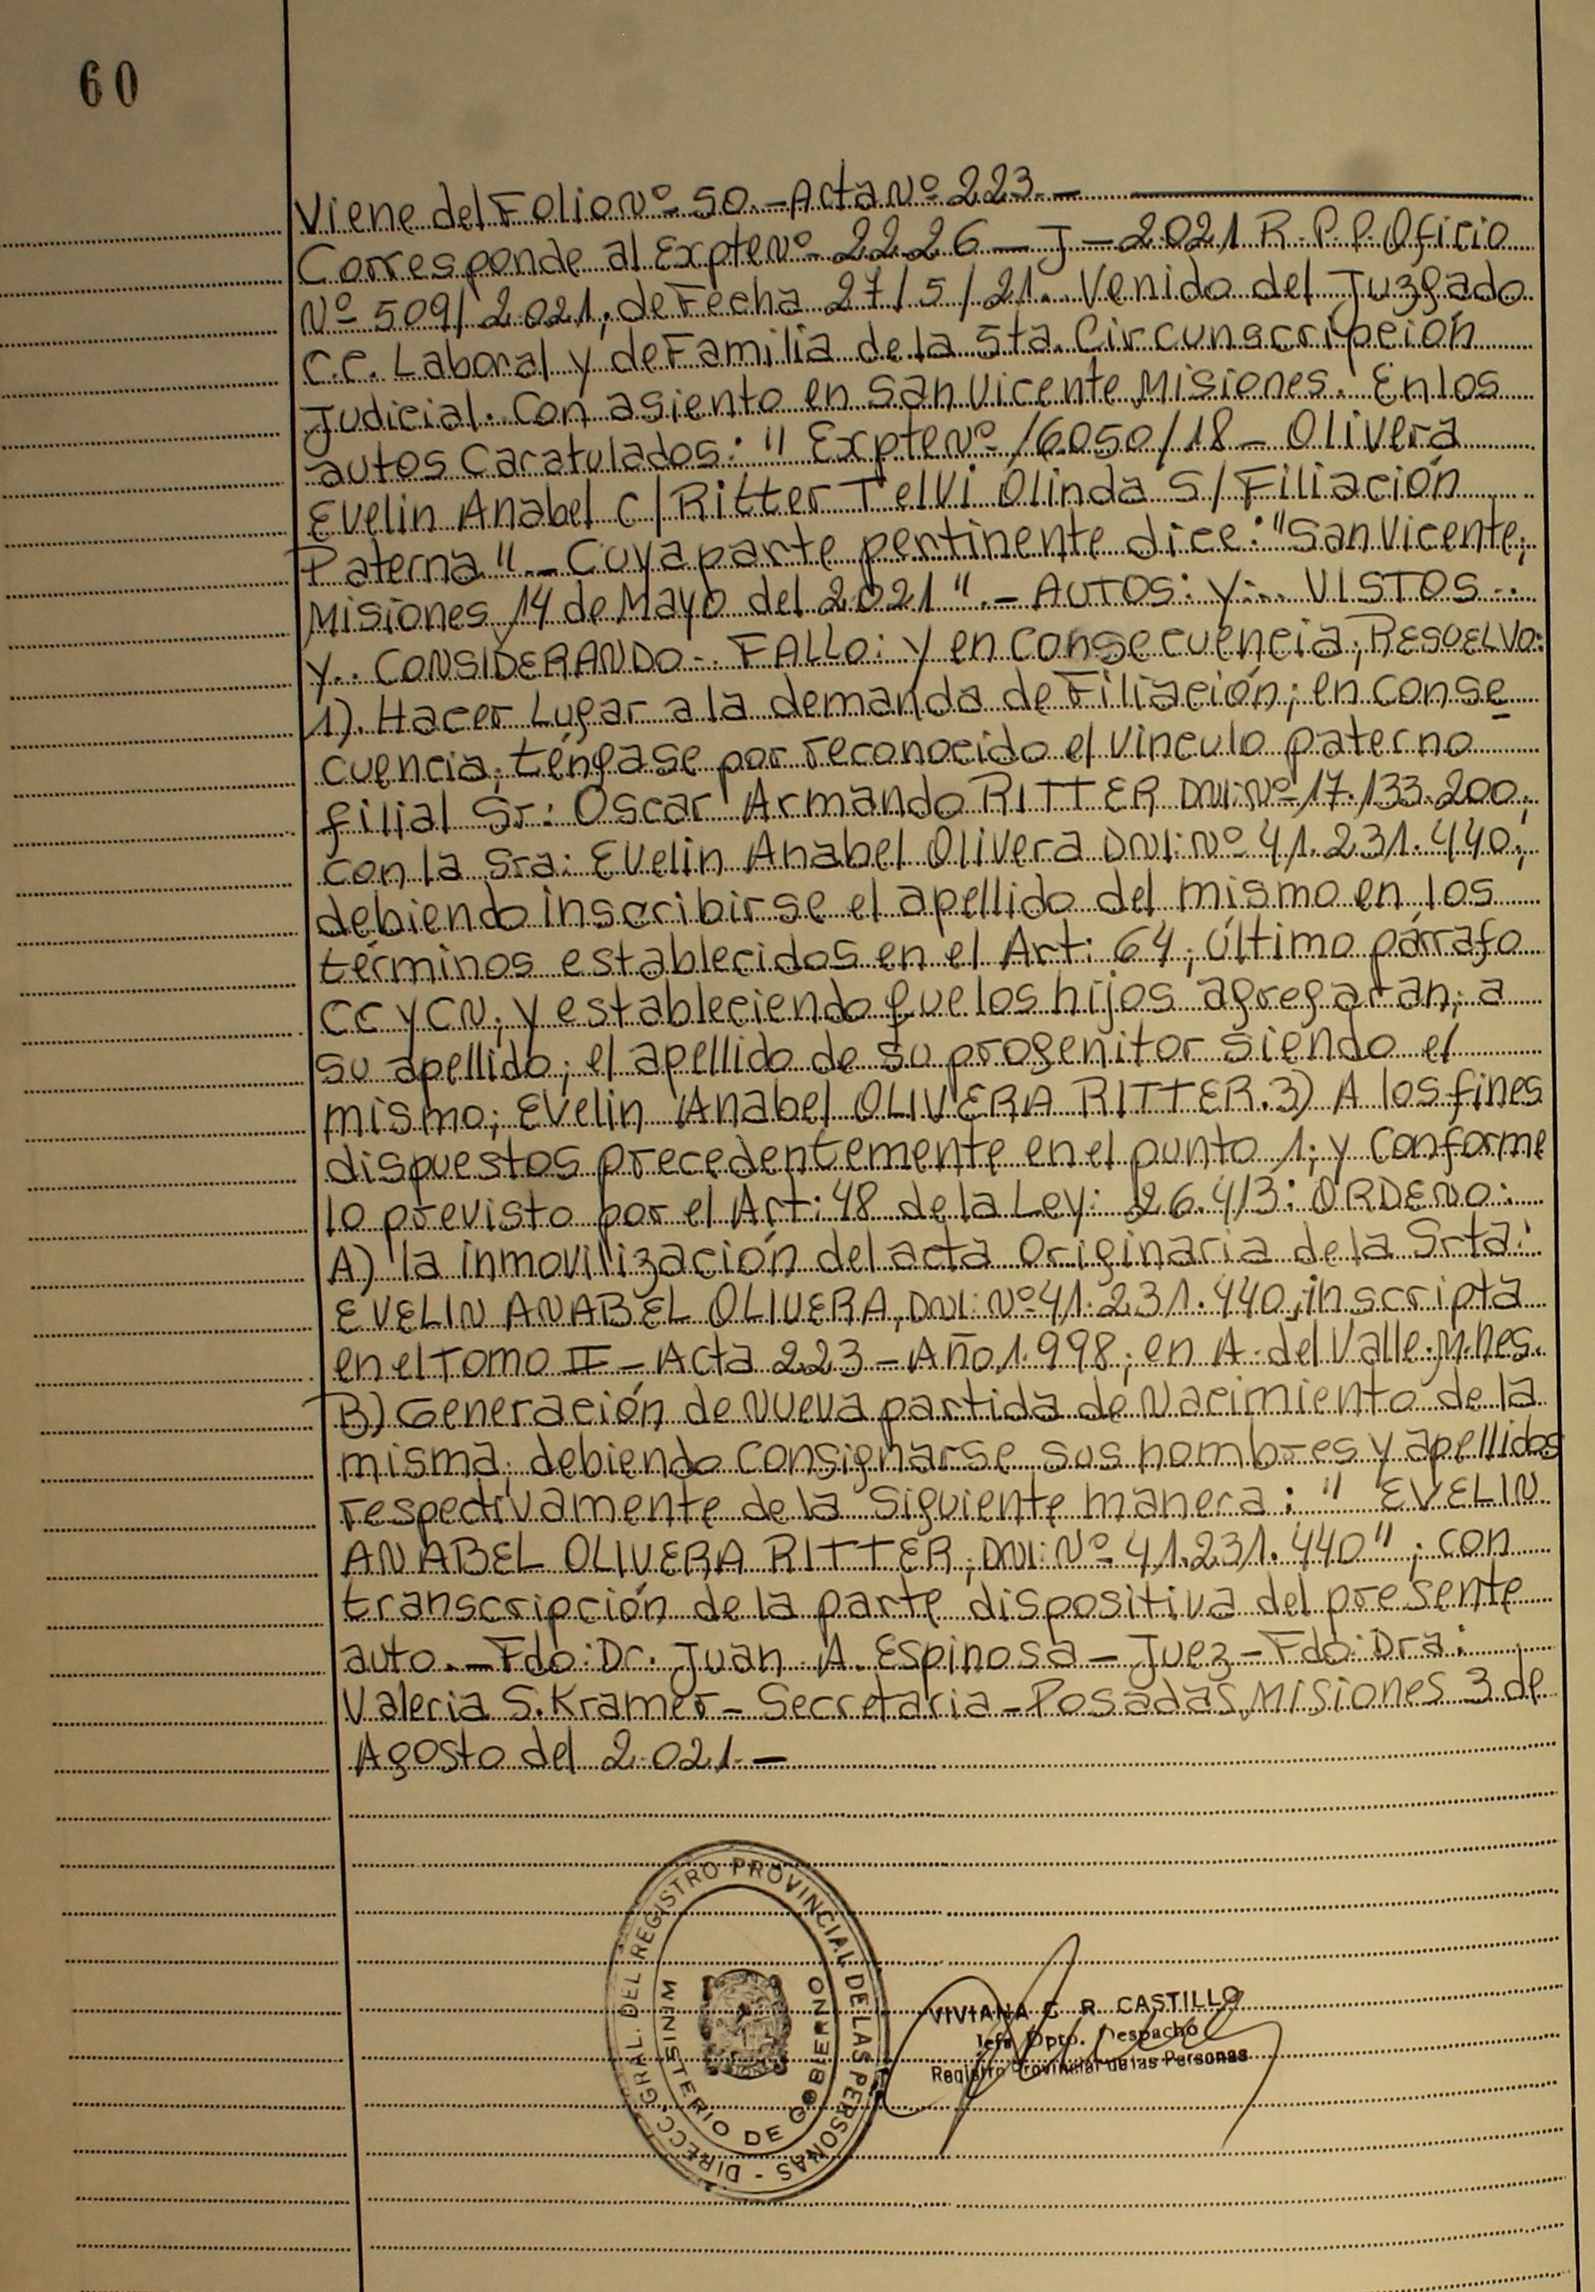 60
Viene del Folio Nº 50.- Acta Nº 223.-
Corresponde al Expte Nº 2226 - J - 2021 R.P.P. Oficio
Nº 509/2021, de Fecha 27/5/21. Venido del Juzgado
C.C. Laboral y de Familia de la 5ta. Circunscripción
Judicial. Con asiento en San Vicente Misiones. En los
autos Caratulados: " Expte Nº 16050/18 - Olivera
Evelin Anabel C/ Ritter Telvi Olinda S/ Filiación
Paterna ".- Cuya parte pertinente dice: "San Vicente,
Misiones, 14 de Mayo del 2021".- AUTOS: Y... VISTOS..
Y.. CONSIDERANDO-. FALLO: y en consecuencia; RESUELVO:
1). Hacer Lugar a la demanda de Filiación; en conse
cuencia; téngase por reconocido el vinculo paterno
filial Sr: Oscar Armando RITTER DNI: Nº 17.133.200,
con la Sra: Evelin Anabel Olivera DNI: Nº 41.231.440;
debiendo inscribirse el apellido del mismo en los
términos establecidos en el Art: 64, último párrafo
CC y CN; y estableciendo que los hijos agregaran; a
su apellido; el apellido de su progenitor siendo el
mismo; Evelin Anabel OLIVERA RITTER. 3) A los fines
dispuestos precedentemente en el punto 1; y conforme
lo previsto por el Art: 48 de la Ley: 26.413: ORDENO:
A) la inmovilización del acta Originaria de la Srta:
EVELIN ANABEL OLIVERA, DNI: Nº 41.231.440, inscripta
en el Tomo II - Acta 223 - Año 1.998; en A. del Valle. M.nes.
B) Generación de Nueva partida de Nacimiento de la
misma; debiendo consignarse sus nombres y apellidos
respectivamente de la siguiente manera: " EVELIN
ANABEL OLIVERA RITTER; DNI: Nº 41.231.440"; con
transcripción de la parte dispositiva del presente
auto.- Fdo: Dr. Juan A. Espinosa - Juez - Fdo: Dra:
Valeria S. Kramer - Secretaria - Posadas, Misiones 3 de
Agosto del 2021.-
DIRECC. GRAL. DEL REGISTRO PROVINCIAL DE LAS PERSONAS -
MINISTERIO DE GOBIERNO
VIVIANA C R CASTILLO
Jefe Dpto. Despacho
Registro Provincial de las Personas